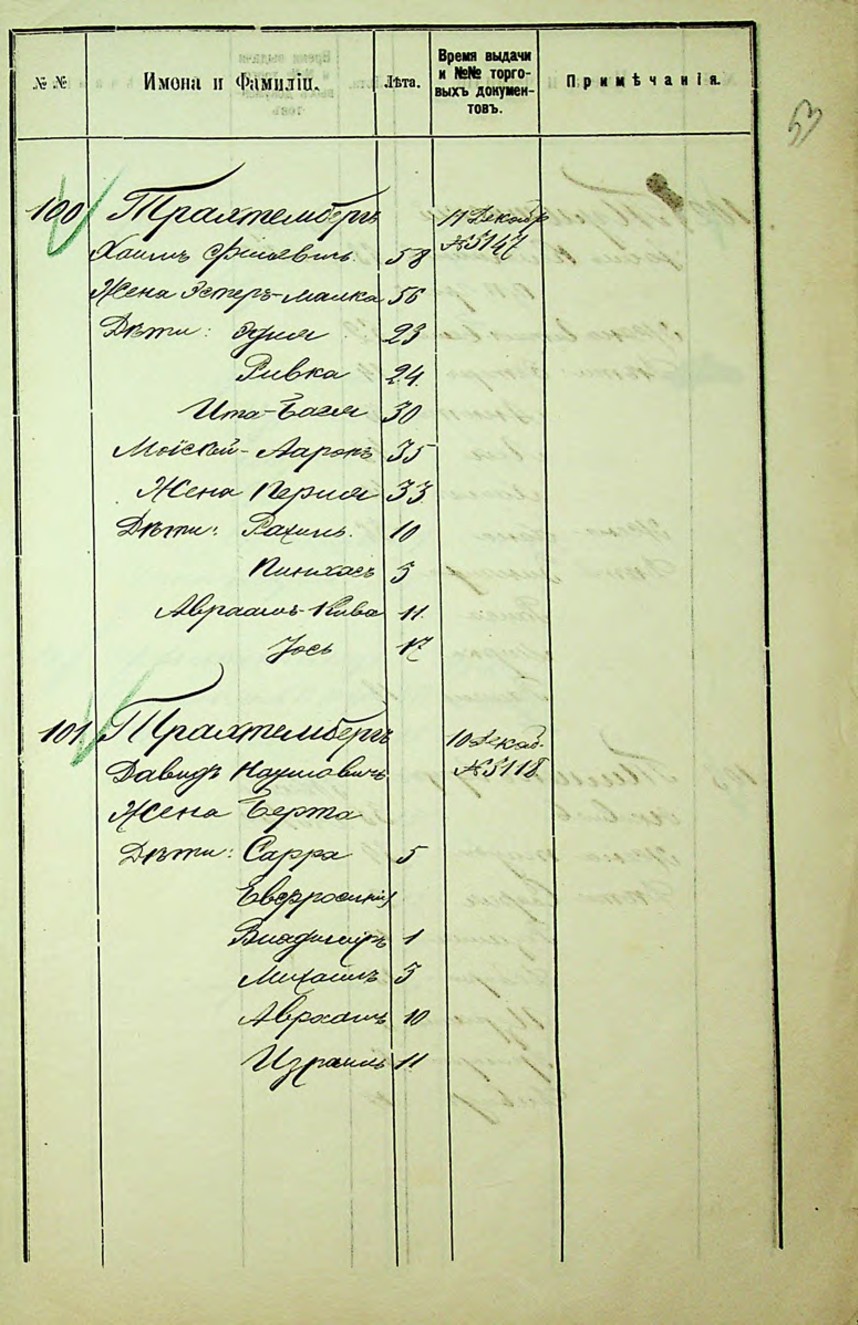 № №
Имена и Фамиліи.
Лѣта.
Время выдачи
и №№ торго-
выхъ докумен-
товъ.
Примѣчанія.
53
100 Трахтембергъ 11 Декабр
Хаимъ 58 №5147
Жена Эстеръ-Малка 56
Дѣти: 23
Ривка 24
Ита-Бася 30
Мойсей-Ааронъ 35
Жена Перля 33
Дѣти: Рахиль 10
Пинхасъ 5
Авраамъ-Кива 11
Іось 12
101 Трахтембергъ 10 Декаб.
Давидъ Наумовичъ №5118
Жена Берта
Дѣти: Сарра 5
Евфросинія
Владиміръ 1
Михаилъ 5
Аврхамъ 10
Израиль 11